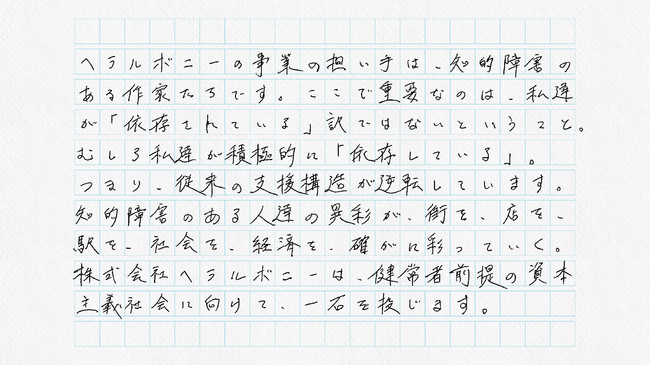 ヘラルボニーの事業の担い手は、知的障害の
ある作家たちです。ここで重要なのは、私達
が「依存されている」訳ではないということ。
むしろ私達が積極的に「依存している」。
つまり、従来の支援構造が逆転しています。
知的障害のある人達の異彩が、街を、店を、
駅を、社会を、経済を、確かに彩っていく。
株式会社ヘラルボニーは、健常者前提の資本
主義社会に向けて、一石を投じます。